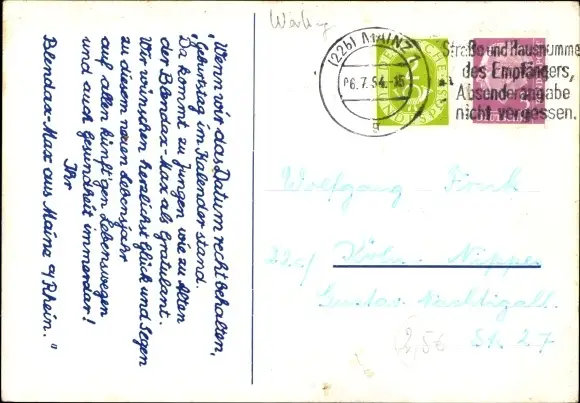 Werbung
(22b) MAINZ 1
-6.7.54.-15
g
Straße und Hausnummer
des Empfängers,
Absenderangabe
nicht vergessen.
"Wenn wir das Datum recht behalten,
"Geburtstag im Kalender stand.
Da kommt zu Jungen wie zu Alten
der Blendax-Max als Gratulant.
Wir wünschen herzlichst Glück und Segen
zu diesem neuen Lebensjahr
auf allen künft'gen Lebenswegen
und auch Gesundheit immerdar!
Ihr
Blendax-Max aus Mainz a/Rhein."
Wolfgang Fink
22c/ Köln-Nippes
Gustav Nachtigall
Str. 27
2,56